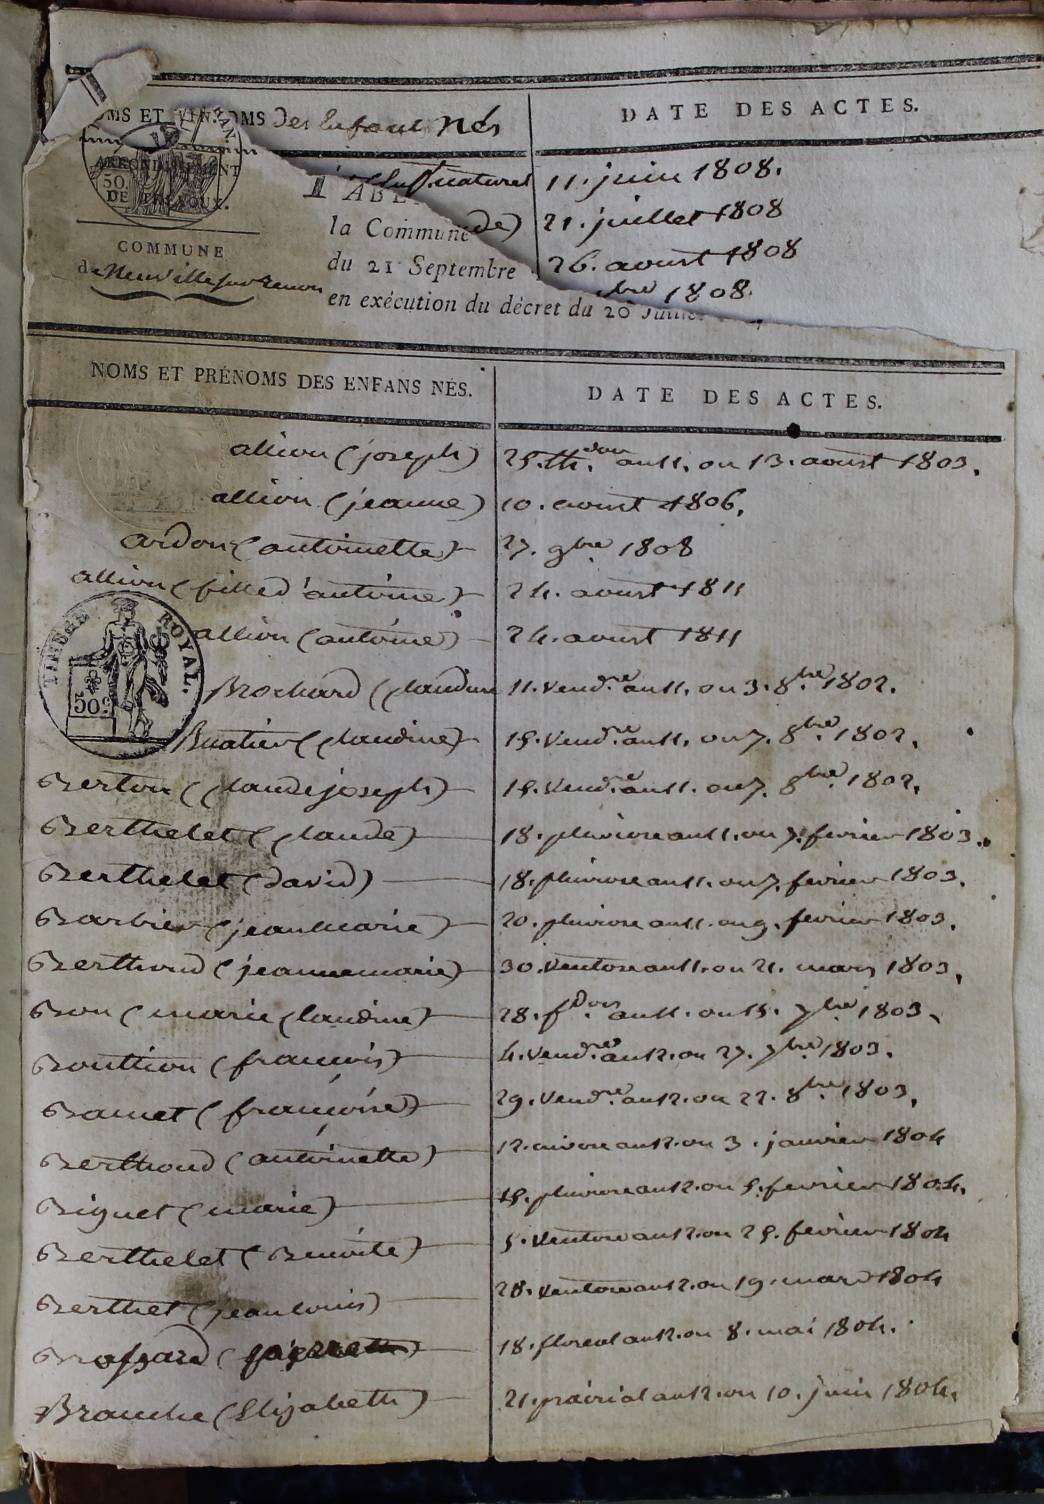 MS ET DMS des Enfans nés
DATE DES ACTES.
naturel 11. juin 1808.
de) 21. juillet 1808
26. aoust 1808
bre 1808.
ARRONDISSEMENT
DE TRÉVOUX.
50
COMMUNE
de Neuville sur Renom
TABLE
la Commune
du 21 Septembre
en exécution du décret du 20 Juillet
NOMS ET PRÉNOMS DES ENFANS NÉS.
DATE DES ACTES.
allion (joseph) 25. th.dor an 11. ou 13. aoust 1803.
allion (jeanne) 10. aoust 1806.
ardon (antoinette) 27. 9bre 1808
allion (fille d'antoine) 24. aoust 1811
allion (antoine) 24. aoust 1811
TIMBRE ROYAL.
50c
Brochard (Claudine 11. vend.re an 11. ou 3. 8bre 1802.
Buatier (Claudine) 15. vend.re an 11. ou 7. 8bre 1802.
Berton (Claude joseph) 15. vend.re an 11. ou 7. 8bre 1802.
Berthelet (Claude) 18. pluviose an 11. ou 7. fevrier 1803.
Berthelet (david) 18. pluviose an 11. ou 7. fevrier 1803.
Barbier (jean marie) 20. pluviose an 11. ou 9. fevrier 1803.
Berthoud (jeanne marie) 30. ventose an 11. ou 21. mars 1803.
Bon (marie Claudine) 28. f.dor an 11. ou 15. 7bre 1803.
Bouttion (françois) 4. vend.re an 12. ou 27. 7bre 1803.
Bamet (françoise) 29. vend.re an 12. ou 22. 8bre 1803.
Berthoud (antoinette) 12. nivose an 12. ou 3. janvier 1804
Biguet (marie) 15. pluviose an 12. ou 5. fevrier 1804.
Berthelet (Benoite) 5. ventose an 12. ou 25. fevrier 1804
Berthet (jean louis) 28. ventose an 12. ou 19. mars 1804
Brossard (pierrette) 18. floreal an 12. ou 8. mai 1804.
Branche (Elizabeth) 21. prairial an 12. ou 10. juin 1804.